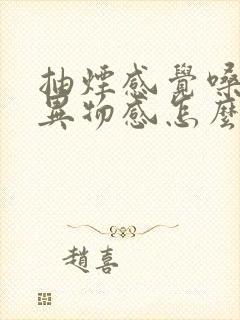 抽煙感覺嗓
異物感怎麼
趙喜